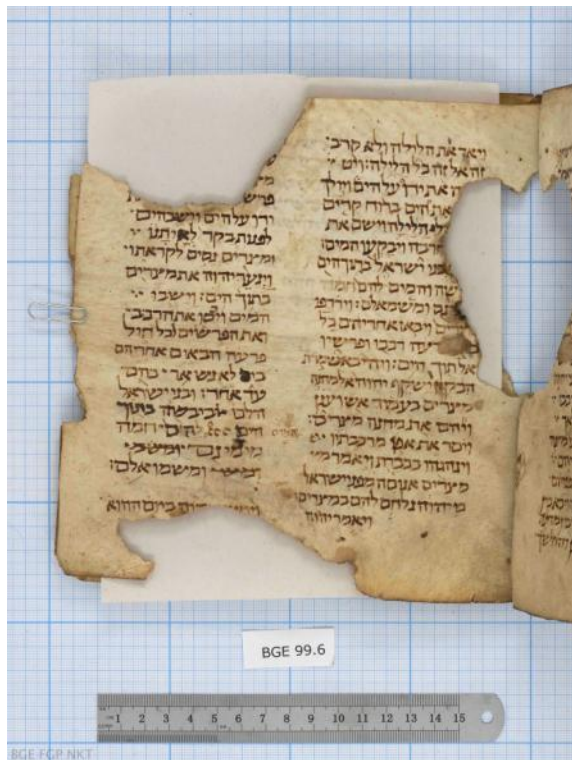 ויאר את הלילה ולא קרב
זה אל זה כל הלילה: ויט
את ידו על הים ויולך
את הים ברוח קדים
הלילה וישם את
ויבקעו המים:
בני ישראל בתוך הים
והמים להם חומה
ומשמאלם: וירדפו
ויבאו אחריהם כל
רכבו ופרשיו
אל תוך הים: ויהי באשמרת
הבקר וישקף יהוה אל מחנה
מצרים בעמוד אש וענן
ויהם את מחנה מצרים:
ויסר את אפן מרכבתיו
וינהגהו בכבדת ויאמר
מצרים אנוסה מפני ישראל
כי יהוה נלחם להם במצרים
ויאמר יהוה
ידו על הים וישב הים
לפנות בקר לאיתנו
ומצרים נסים לקראתו
וינער יהוה את מצרים
בתוך הים: וישבו
המים ויכסו את הרכב
ואת הפרשים לכל חיל
פרעה הבאים אחריהם
בים לא נשאר בהם
עד אחד: ובני ישראל
הלכו ביבשה בתוך
הים והמים להם חמה
מימינם ומשמאלם:
ביום ההוא
BGE 99.6
1 2 3 4 5 6 7 8 9 10 11 12 13 14 15
BGE FGP NKT